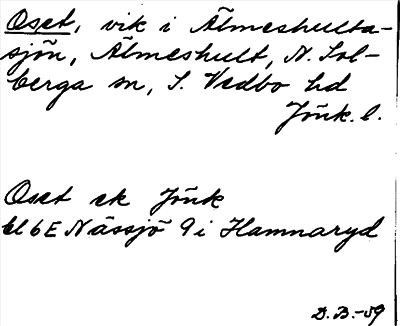 Oset, vik i Älmeshulta-
sjön, Älmeshult, N. Sol-
berga sn, S. Vedbo hd
Jönk. l.
Oset ek Jönk
bl 6E Nässjö 9 i Hamnaryd
D.B.-59